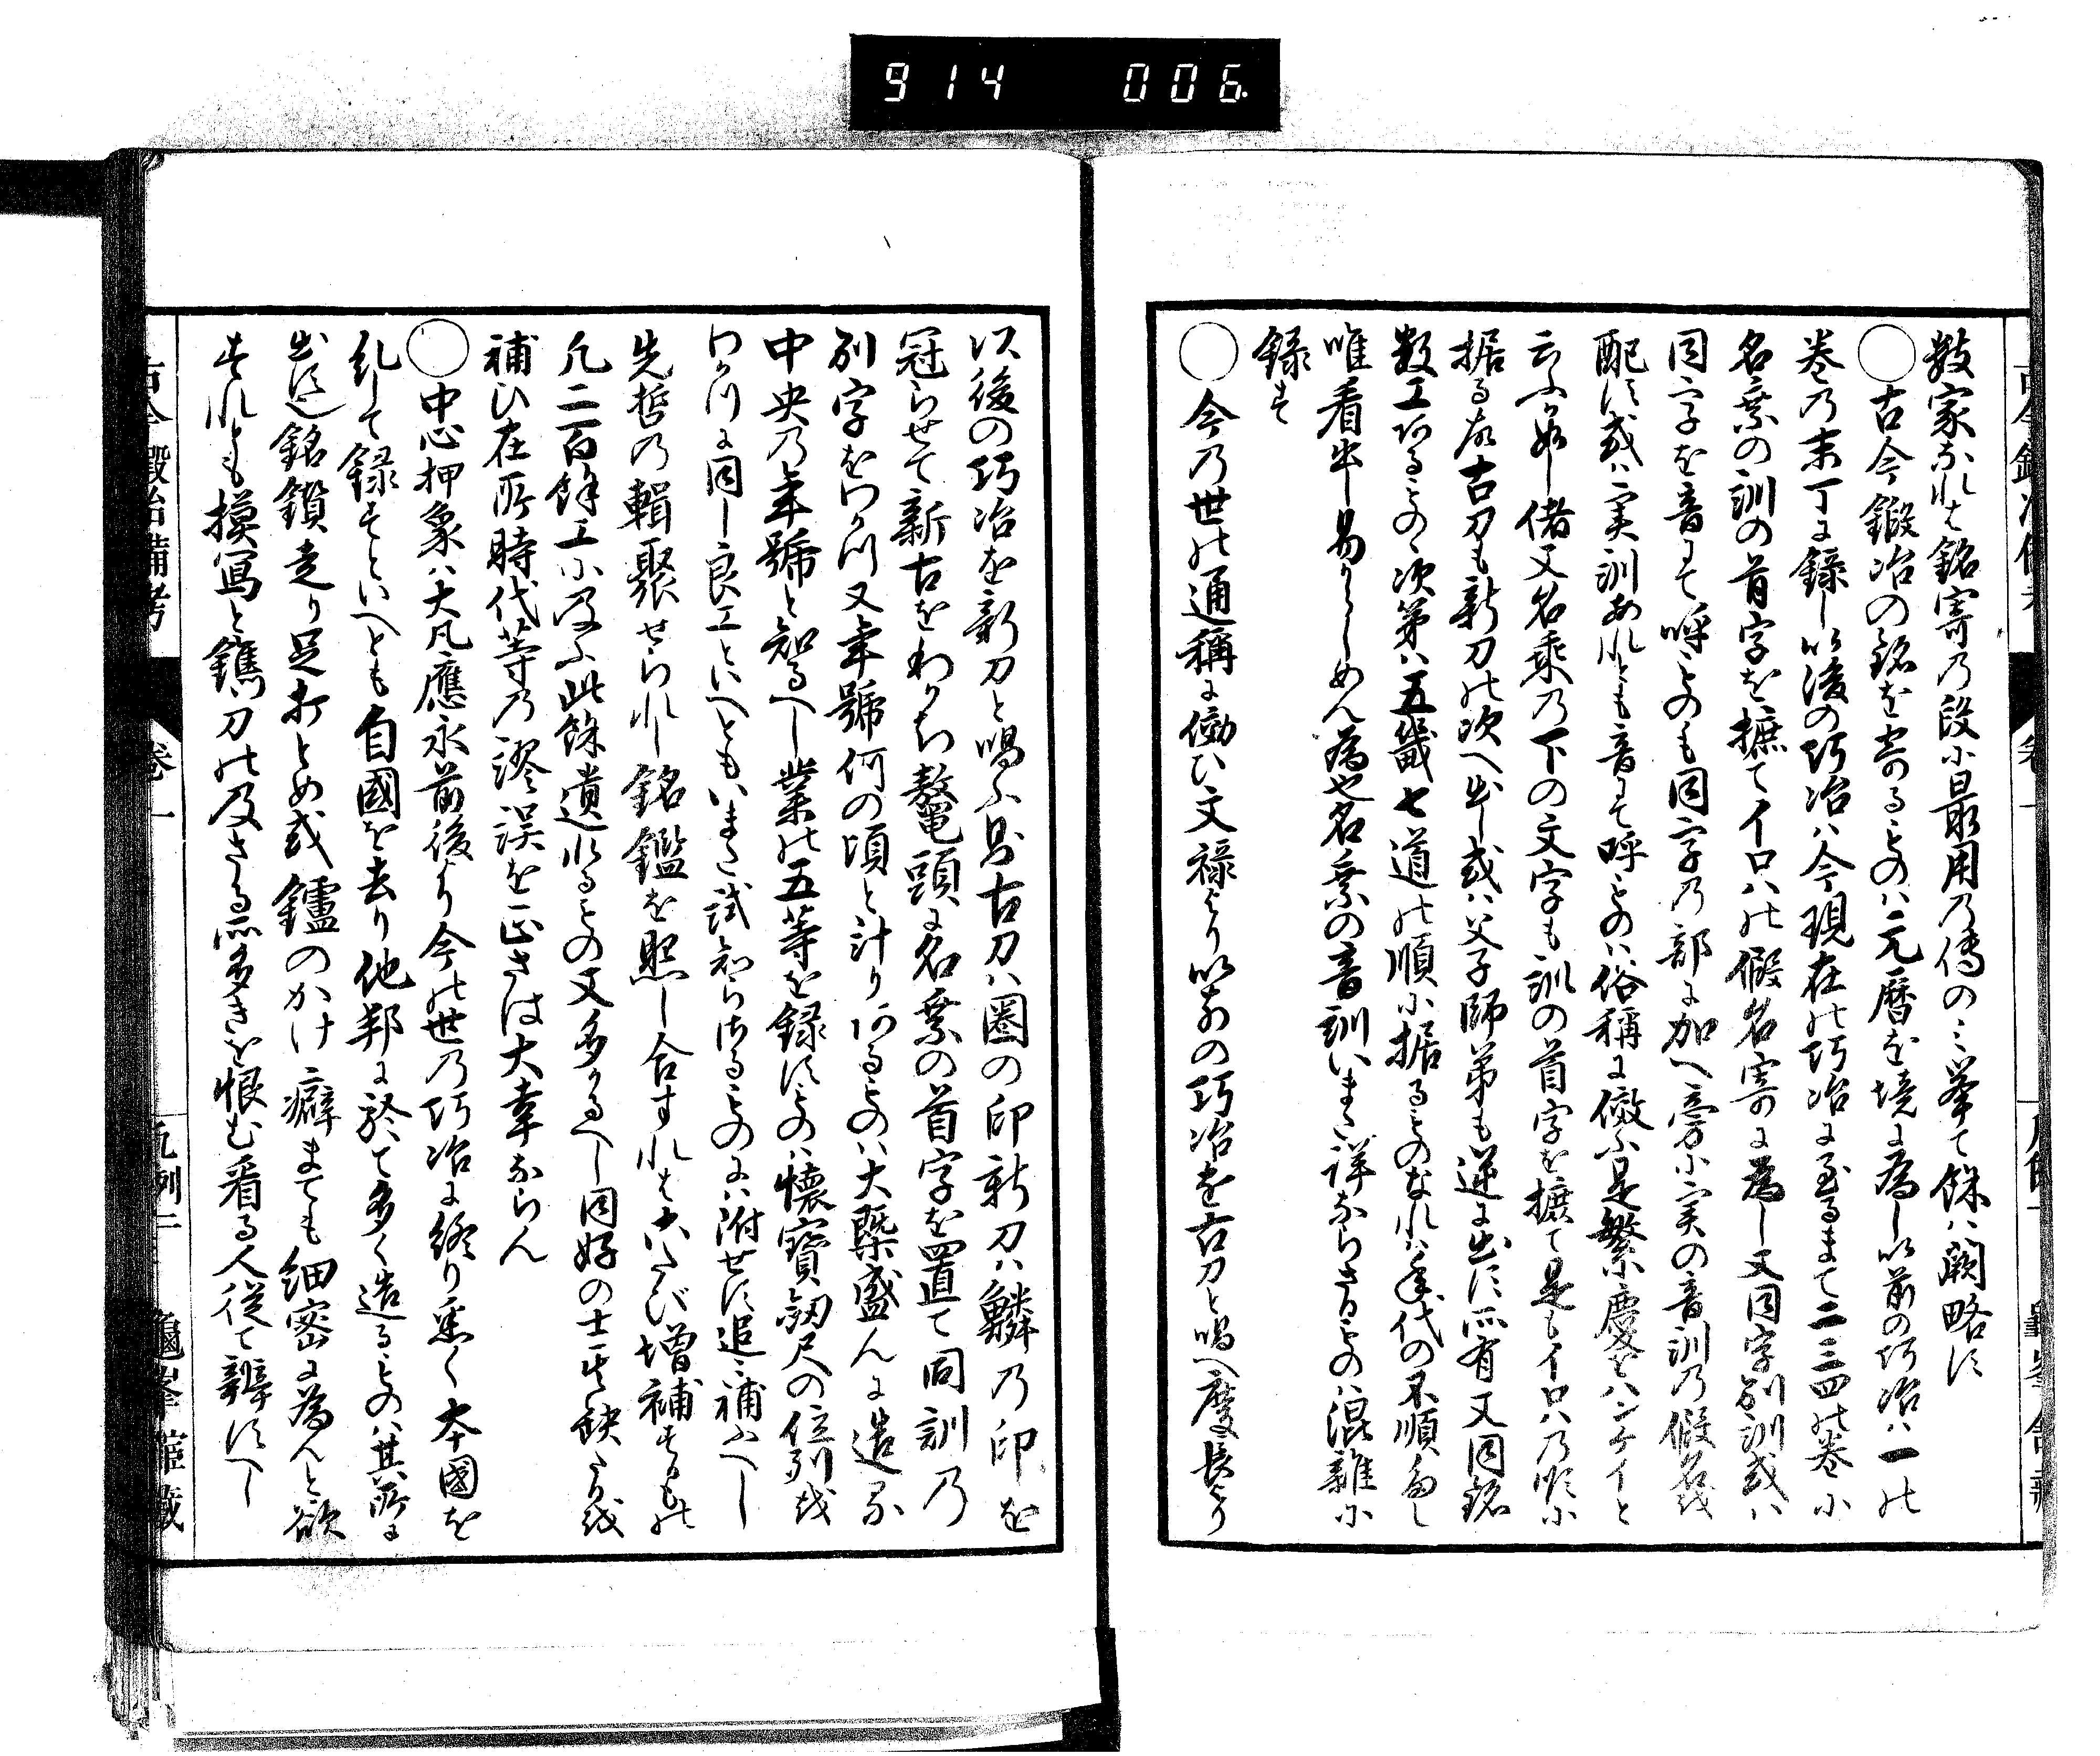 914 006.
数家なれは銘寄乃段に最用乃傳のミ挙て餘ハ闕略す
◯古今鍛冶の銘を寄るものハ元暦を境に為し以前の巧冶ハ一の
巻乃末丁に録し以後の巧冶ハ今現在の巧冶に至るまて二三四の巻に
名乗の訓の首字を摭てイロハの假名寄に為し又同字別訓或ハ
同字を音にて呼ものも同字乃部に加へ旁に実の音訓乃假名を
配す或ハ実訓あれとも音にて呼ものハ俗稱に倣ふ是繁慶をハンケイと
云ふか如し偖又名乗乃下の文字も訓の首字を摭て是もイロハ乃順に
据る故古刀も新刀の次へ出し或ハ父子師弟も逆に出す所有又同銘
数工あるもの丶次第ハ五畿七道の順に据るものなれハ年代の不順多し
唯看出し易からしめん為也名乗の音訓いまた詳ならさるもの混雑に
録す
◯今乃世の通稱に倣ひ文禄より以前の巧冶を古刀と唱へ慶長より
以後の巧冶を新刀と唱ふ則古刀ハ圏の印新刀ハ鱗乃印を
冠らせて新古をわかち鼇頭に名乗の首字を置て同訓乃
別字をわかつ又年號何の頃と計りあるものハ大槩盛んに造る
中央乃年號と知るへし業の五等を録すものハ懐寶剱尺の位列を
わかつに同し良工といへともいまた試知らさるものにハ附せす追て補ふへし
先哲乃輯聚せられし銘鑑を照し合すれは六たび増補するもの
凡二百餘工に及ふ此餘遺れるもの又多かるへし同好の士其缺たるを
補ひ在所時代等乃謬誤を正さは大幸ならん
◯中心押象ハ大凡應永前後より今の世乃巧冶に終り悉く本國を
糺して録すといへとも自國を去り他邦に於て多く造るものハ其所に
出す近銘鑚走り足打とめ或鑢のかけ癖まても細密に為んと欲
すれとも摸冩と鐫刀の及さる所多きを恨む看る人従て辨すへし
古今鍛冶備考 巻一 凡例二 龜峯館蔵